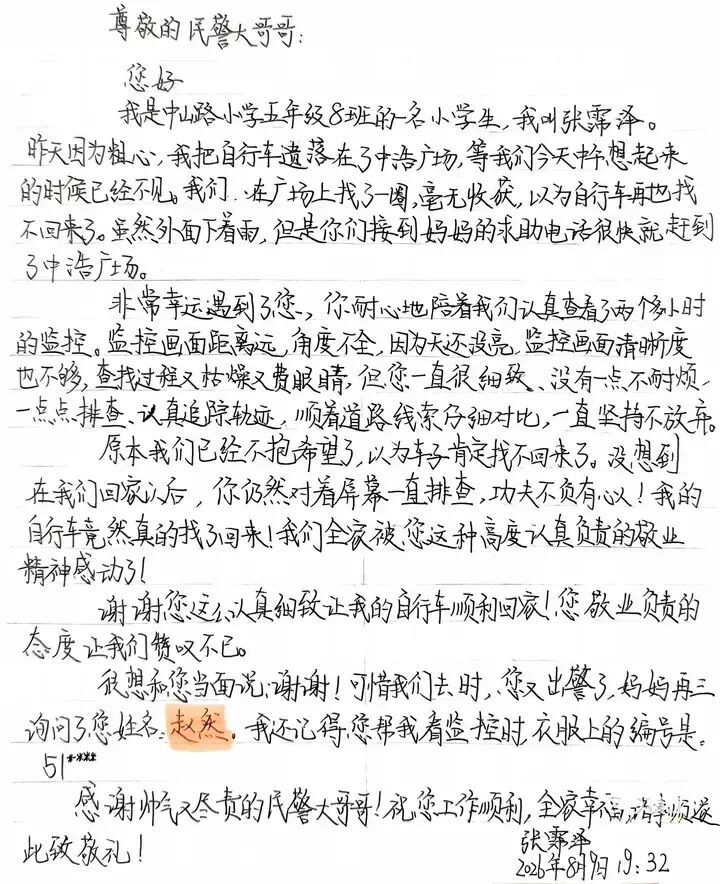 尊敬的民警大哥哥：
您好
我是中山路小学五年级8班的一名小学生，我叫张霈泽。
昨天因为粗心，我把自行车遗落在了中浩广场，等我们今天中午想起来
的时候已经不见。我们..在广场上找了一圈，毫无收获，以为自行车再也找
不回来了。虽然外面下着雨，但是你们接到妈妈的求助电话很快就赶到
了中浩广场。
非常幸运遇到了您、，你耐心地陪着我们认真查看了两个多小时
的监控。监控画面距离远，角度不全，因为天还没亮，监控画面清晰度
也不够，查找过程又枯燥又费眼睛，但您一直很细致、没有一点不耐烦，
一点点排查、认真追踪轨迹，顺着道路线索仔细对比，一直坚持不放弃。
原本我们已经不抱希望了，以为车子肯定找不回来了。没想到
在我们回家以后，你仍然对着屏幕一直排查，功夫不负有心人！我的
自行车竟然真的找了回来！我们全家被您这种高度认真负责的敬业
精神感动了！
谢谢您这么认真细致让我的自行车顺利回家！您敬业负责的
态度让我们赞叹不已。
很想和您当面说谢谢！可惜我们去时，您又出警了，妈妈再三
询问了您姓名：赵然。我还记得您帮我看监控时衣服上的编号是：
51****
感谢帅气又尽责的民警大哥哥！祝您工作顺利，全家幸福，遂
此致敬礼！
张霈泽
2026年8月9日 19:32